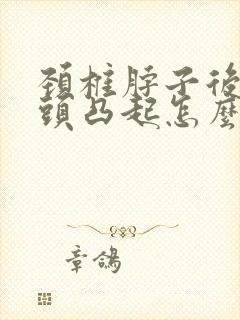 頚柱脖子後
頭凸起怎麼
章鴿